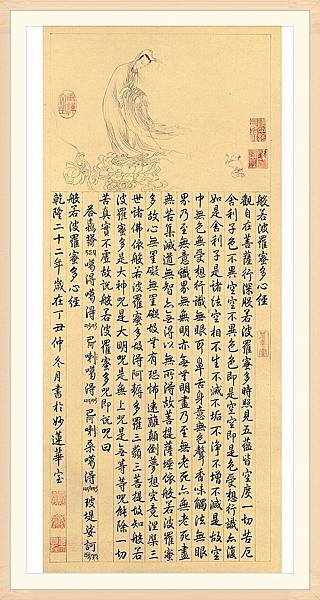 般若波羅蜜多心經
觀自在菩薩行深般若波羅蜜多時照見五蘊皆空度一切苦厄
舍利子色不異空空不異色色即是空空即是色受想行識亦復
如是舍利子是諸法空相不生不滅不垢不淨不增不減是故空
中無色無受想行識無眼耳鼻舌身意無色聲香味觸法無眼
界乃至無意識界無無明亦無無明盡乃至無老死亦無老死盡
無苦集滅道無智亦無得以無所得故菩提薩埵依般若波羅蜜
多故心無罣礙無罣礙故無有恐怖遠離顛倒夢想究竟涅槃三
世諸佛依般若波羅蜜多故得阿耨多羅三藐三菩提故知般若
波羅蜜多是大神咒是大明咒是無上咒是無等等咒能除一切
苦真實不虛故說般若波羅蜜多咒即說咒曰
噶得噶得 喇噶得 喇桑噶得 玻提娑訶
般若波羅蜜多心經
乾隆二十二年歲在丁丑仲冬月書於妙蓮華室